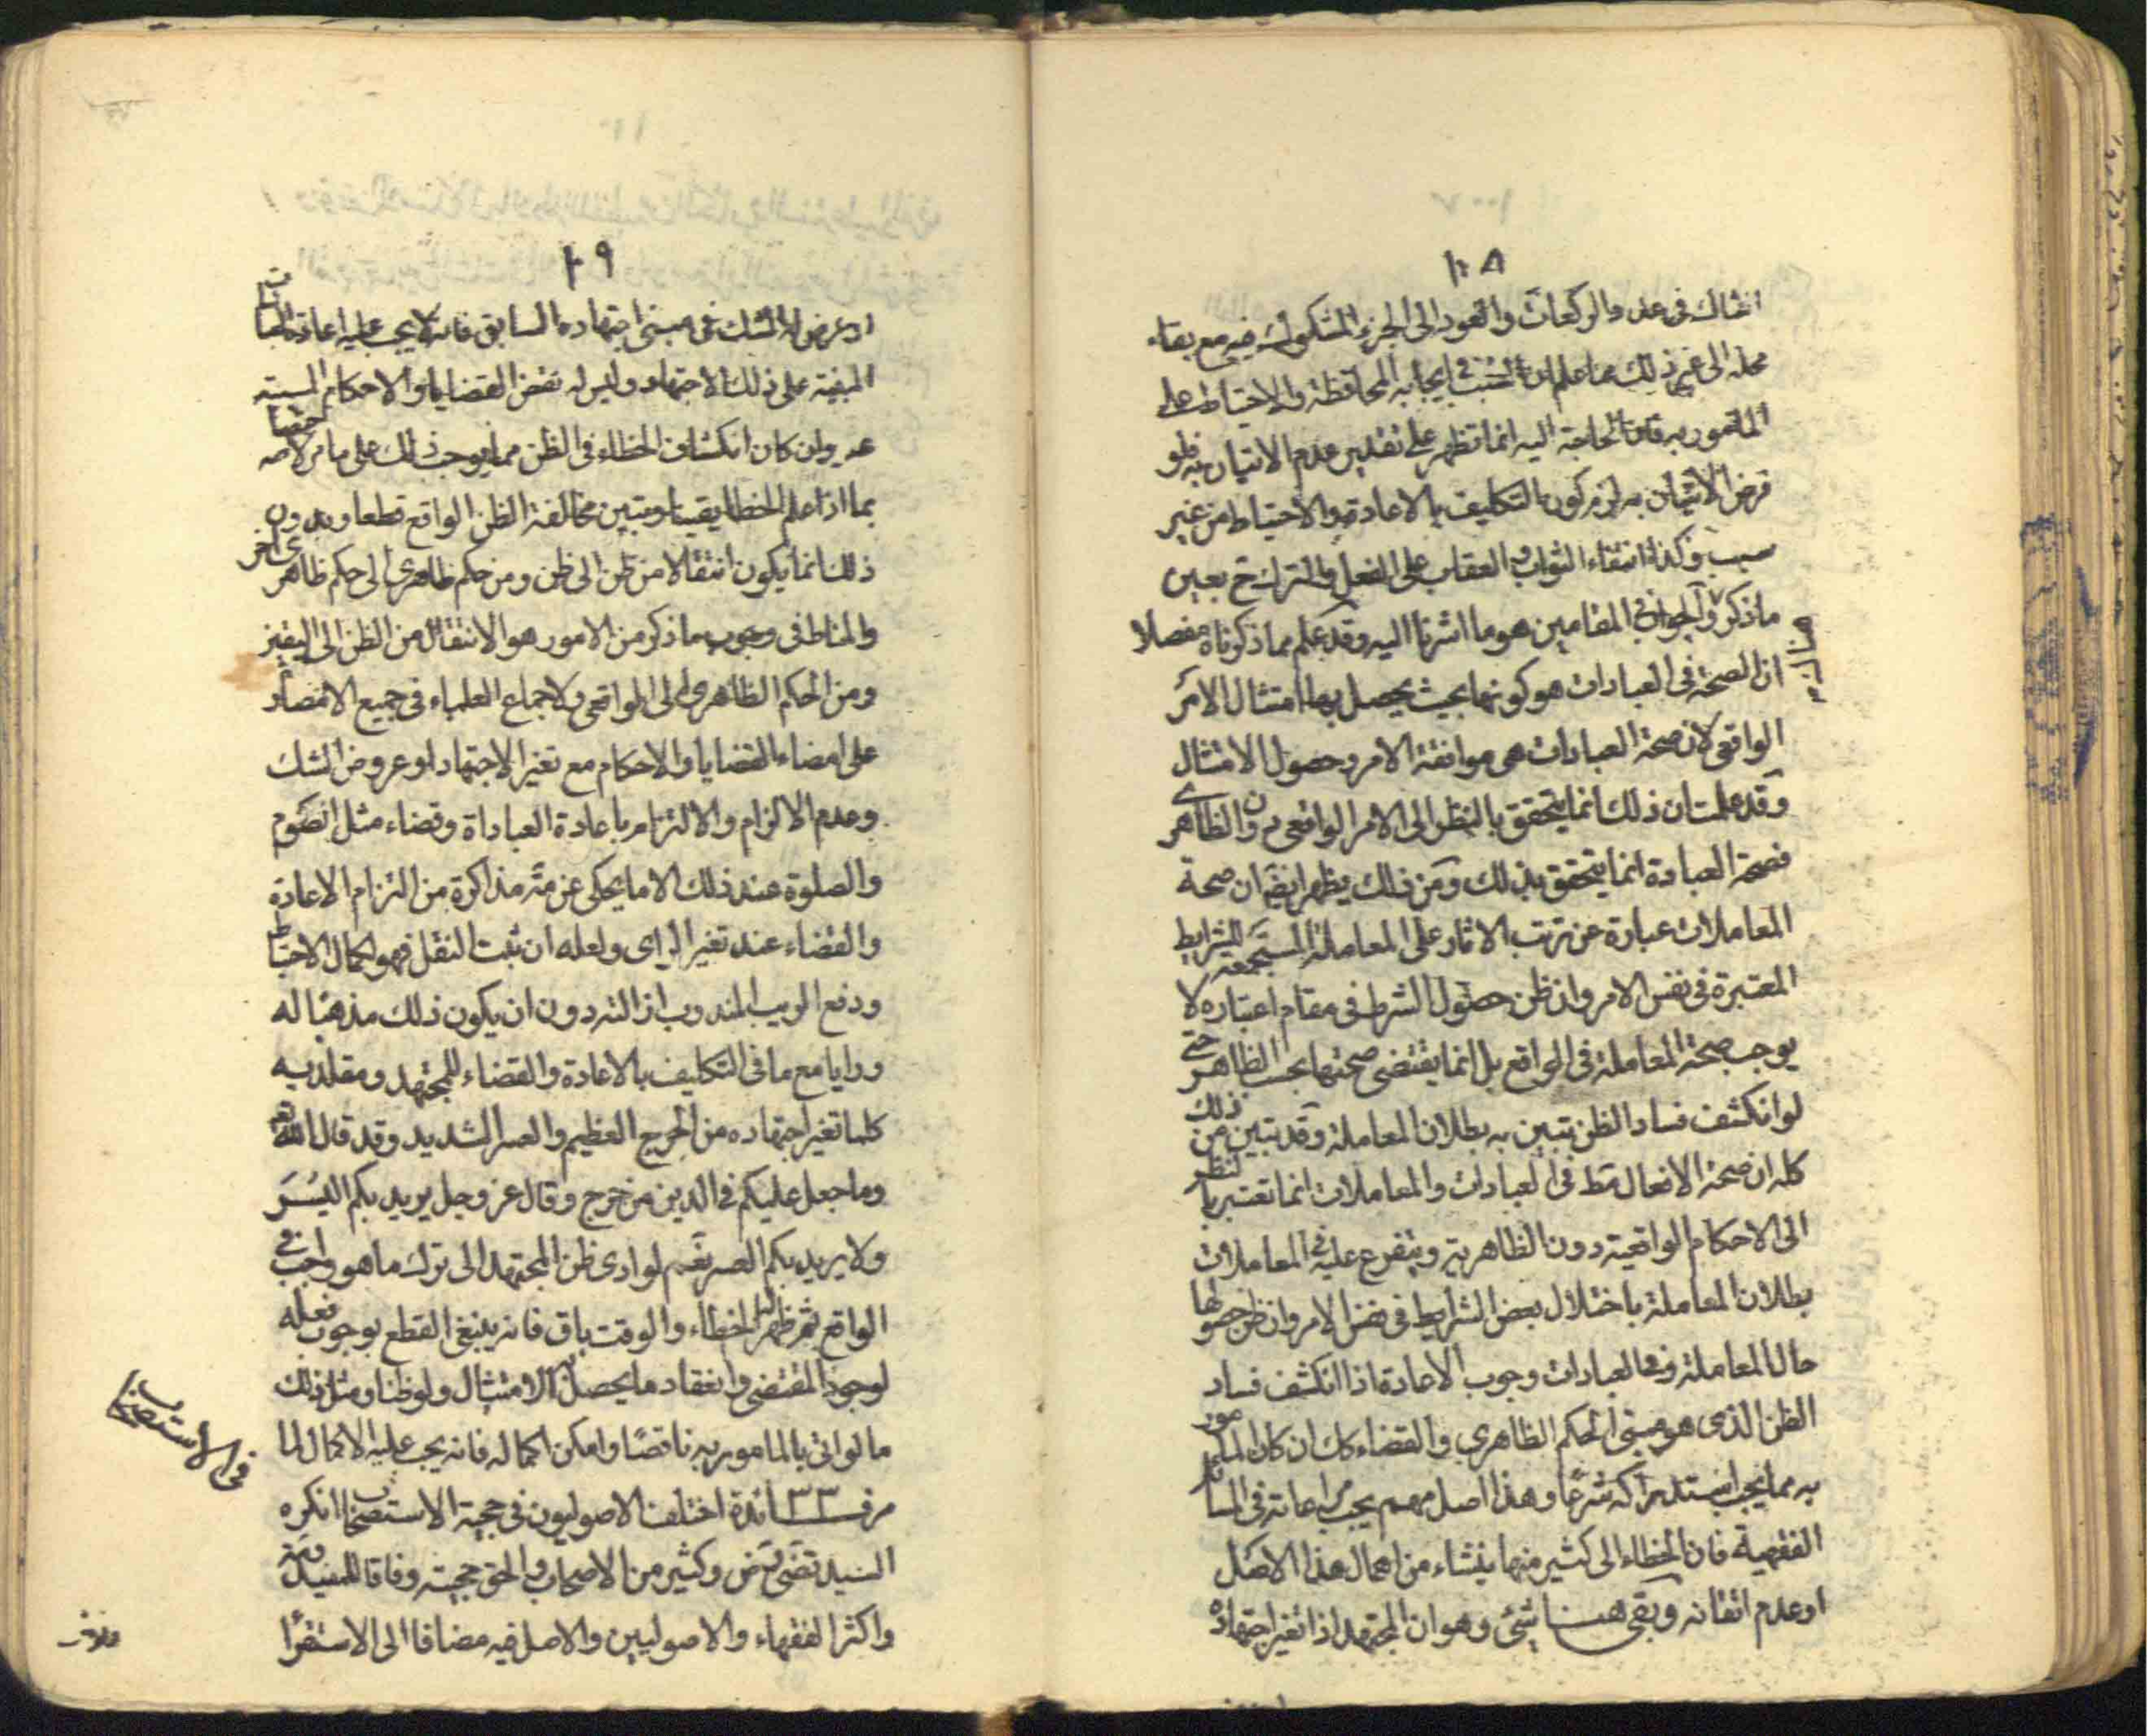 ١٠٨
الشاك في عدد الركعات والعود الى الجزء المشكوك فيه مع بقاء
محله الى غير ذلك مما علم ان السبب في ايجابه المحافظة والاحتياط على
المامور به فان الحاجة اليه انما تظهر على تقدير عدم الاتيان به فلو
فرض الاتيان به لزم كون التكليف بالاعادة والاحتياط من غير
سبب وكذا انتفاء الثواب والعقاب على الفعل والترك ح بعين
ما ذكر والجواب في المقامين هو ما اشرنا اليه وقد علم مما ذكرناه مفصلا
ان الصحة في العبادات هو كونها بحيث يحصل بها امتثال الامر
الواقعي لان صحة العبادات هي موافقة الامر وحصول الامتثال
وقد علمت ان ذلك انما يتحقق بالنظر الى الامر الواقعي دون الظاهري
فصحة العبادة انما يتحقق بذلك ومن ذلك يظهر ايضا ان صحة
المعاملات عبارة عن ترتب الاثار على المعاملة المستجمعة للشرايط
المعتبرة في نفس الامر وان ظن حصول الشرط في مقام اعتباره لا
يوجب صحة المعاملة في الواقع بل انما يقتضى صحتها بحسب الظاهر حتى
لو انكشف فساد الظن تبين به بطلان المعاملة وقد تبين من ذلك
كله ان صحة الافعال مط في العبادات والمعاملات انما تعتبر بالنظر
الى الاحكام الواقعية دون الظاهرية ويتفرع عليه في المعاملات
بطلان المعاملة باختلال بعض الشرايط في نفس الامر وان ظن حصولها
حال المعاملة وفي العبادات وجوب الاعادة اذا انكشف فساد
الظن الذى هو مبنى الحكم الظاهري والقضاء كك ان كان المامور
به مما يجب استدراكه شرعا وهذا اصل مهم يجب مراعاته في المسائل
الفقهية فان الخطاء الى كثير منها ينشاء من اهمال هذا الاصل
او عدم اتقانه وبقى هنا شئ وهو ان المجتهد اذا تغير اجتهاده
١٠٩
او عرض له الشك في مبنى اجتهاده السابق فانه لا يجب عليه اعادة العبادات
المبنية على ذلك الاجتهاد وليس له نقض القضايا والاحكام المبنية
عليه وان كان انكشاف الخطاء في الظن مما يوجب ذلك على ما مر لاختصاصه
بما اذا علم الخطا يقينا وتبين مخالفة الظن الواقع قطعا وبدون
ذلك انما يكون انتقالا من ظن الى ظن ومن حكم ظاهري الى حكم ظاهري اخر
والمناط في وجوب ما ذكر من الامور هو الانتقال من الظن الى اليقين
ومن الحكم الظاهري الى الواقعي ولاجماع العلماء في جميع الامصار
على امضاء القضايا والاحكام مع تغير الاجتهاد او عروض الشك
وعدم الالزام والالتزام باعادة العباداة وقضاء مثل الصوم
والصلوة عند ذلك الا ما يحكى عن مذاكرة من التزام الاعادة
والقضاء عند تغير الراى ولعله ان ثبت النقل فهو لكمال الاحتياط
ودفع الريب المندوب دون ان يكون ذلك مذهبا له
ورايا مع ما في التكليف بالاعادة والقضاء للمجتهد ومقلديه
كلما تغير اجتهاده من الحرج العظيم والعسر الشديد وقد قال الله
وما جعل عليكم في الدين من حرج وقال عز وجل يريد بكم اليسر
ولا يريد بكم العسر نعم لو ادى ظن المجتهد الى ترك ما هو واجب في
الواقع ثم ظهر له الخطاء والوقت باق فانه ينبغي القطع بوجوب فعله
لوجود المقتضى وانعقاد ما يحصل به الامتثال ولو ظنا ومثل ذلك
ما لو اتى بالمامور به ناقصا وامكن اكماله فانه يجب عليه الاكمال لما
مر فـــائدة اختلف الاصوليون في حجية الاستصحاب انكره
السيد وكثير من الاصحاب والحق حجيته وفاقا للمفيد
واكثر الفقهاء والاصوليين والاصل فيه مضافا الى الاستقراء
في الاستصحاب